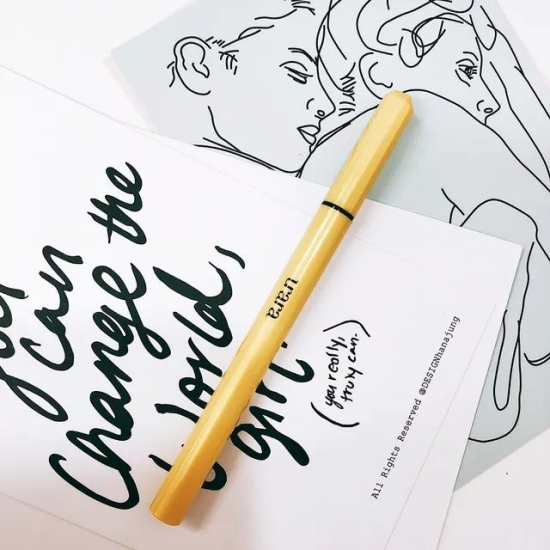 you can
Change the
World,
girl.
(you really,
truly can.)
All Rights Reserved @DESIGNhanajung
urara